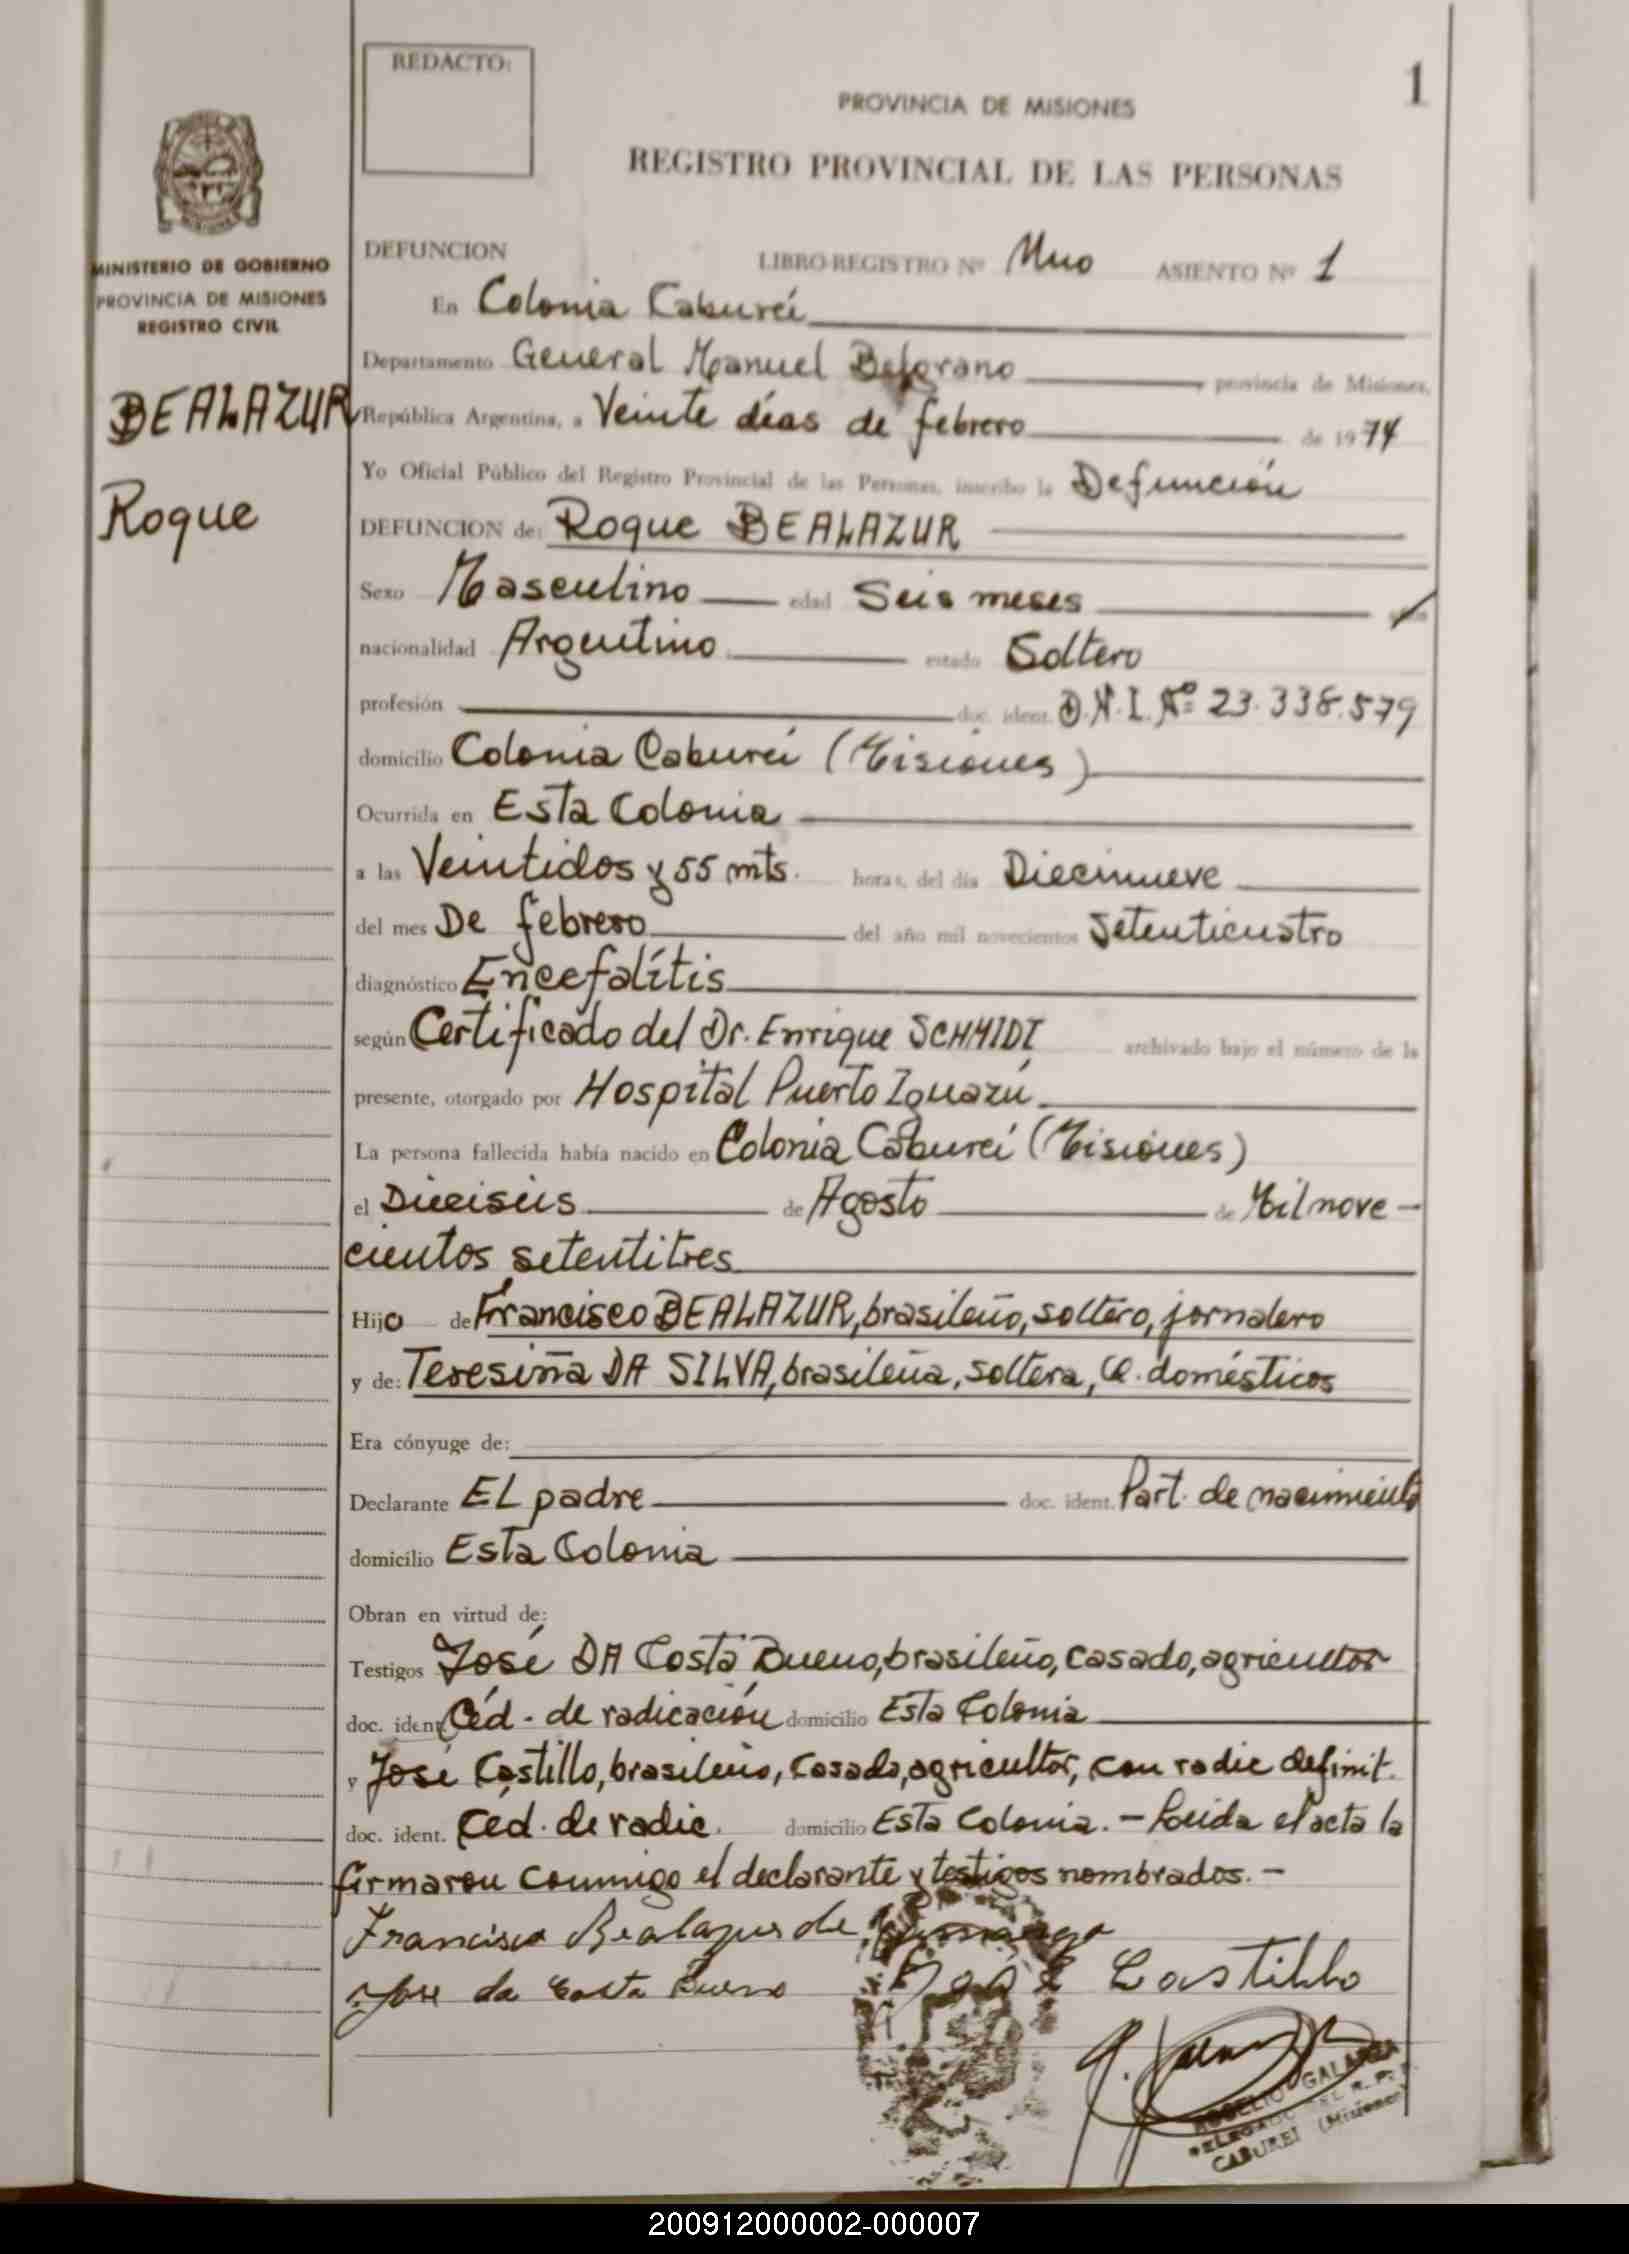 REDACTO:
1
PROVINCIA DE MISIONES
REGISTRO PROVINCIAL DE LAS PERSONAS
MINISTERIO DE GOBIERNO
PROVINCIA DE MISIONES
REGISTRO CIVIL
BEALAZUR
Roque
DEFUNCION LIBRO-REGISTRO Nº Uno ASIENTO Nº 1
En Colonia Cabureí
Departamento General Manuel Belgrano provincia de Misiones,
República Argentina, a Veinte días de febrero de 1974
Yo Oficial Público del Registro Provincial de las Personas, inscribo la Defunción
DEFUNCION de: Roque BEALAZUR
Sexo Masculino edad Seis meses
nacionalidad Argentino estado Soltero
profesión doc. ident. D.N.I. Nº 23.338.579
domicilio Colonia Cabureí (Misiones)
Ocurrida en Esta Colonia
a las Veintidos y 55 mts. horas, del día Diecinueve
del mes De febrero del año mil novecientos Setenticuatro
diagnóstico Encefalítis
según Certificado del Dr. Enrique SCHMIDT archivado bajo el número de la
presente, otorgado por Hospital Puerto Iguazú
La persona fallecida había nacido en Colonia Cabureí (Misiones)
el Dieciséis de Agosto de Mil nove-
cientos setentitres
Hijo de Francisco BEALAZUR, brasileño, soltero, jornalero
y de: Teresiña DA SILVA, brasileña, soltera, Q. domésticos
Era cónyuge de:
Declarante EL padre doc. ident. Part. de nacimiento
domicilio Esta Colonia
Obran en virtud de:
Testigos José DA Costa Bueno, brasileño, casado, agricultor
doc. ident. Céd. de radicación domicilio Esta Colonia
y José Castillo, brasileño, casado, agricultor, con radic definit.
doc. ident. Céd. de radic. domicilio Esta Colonia. - Leída el acta la
firmaron conmigo el declarante y testigos nombrados. -
Francisco Bealazur de
Jose da Costa Bueno José Castillo
ROGELIO GALARZA
DELEGADO DEL R. P.
CABUREI (Misiones)
200912000002-000007